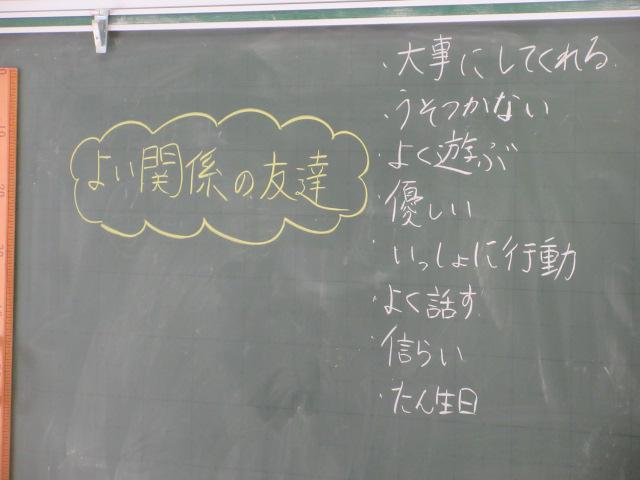 よい関係の友達
・大事にしてくれる
・うそつかない
・よく遊ぶ
・優しい
・いっしょに行動
・よく話す
・信らい
・たん生日